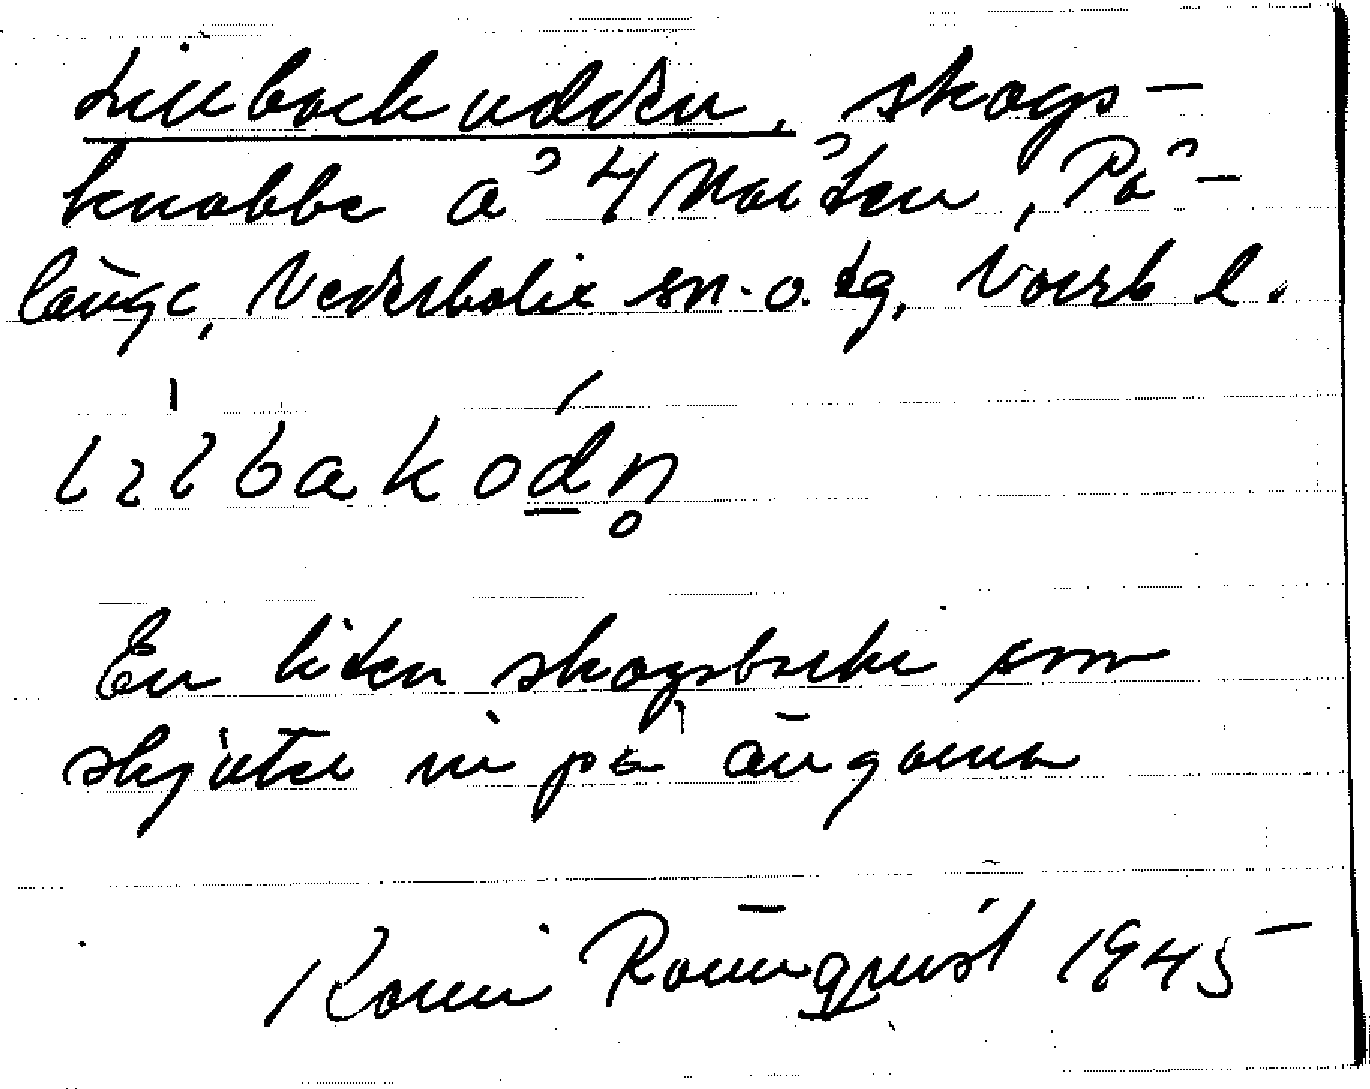 Lillbackudden, skogs-
knabbe å 4 Mårten, På-
länge, Nederkalix sn. o. tg, Norrb l.
lilbakodn̥
En liten skogsbacke som
skjuter in på ängarna
Karin Rönnqvist 1945